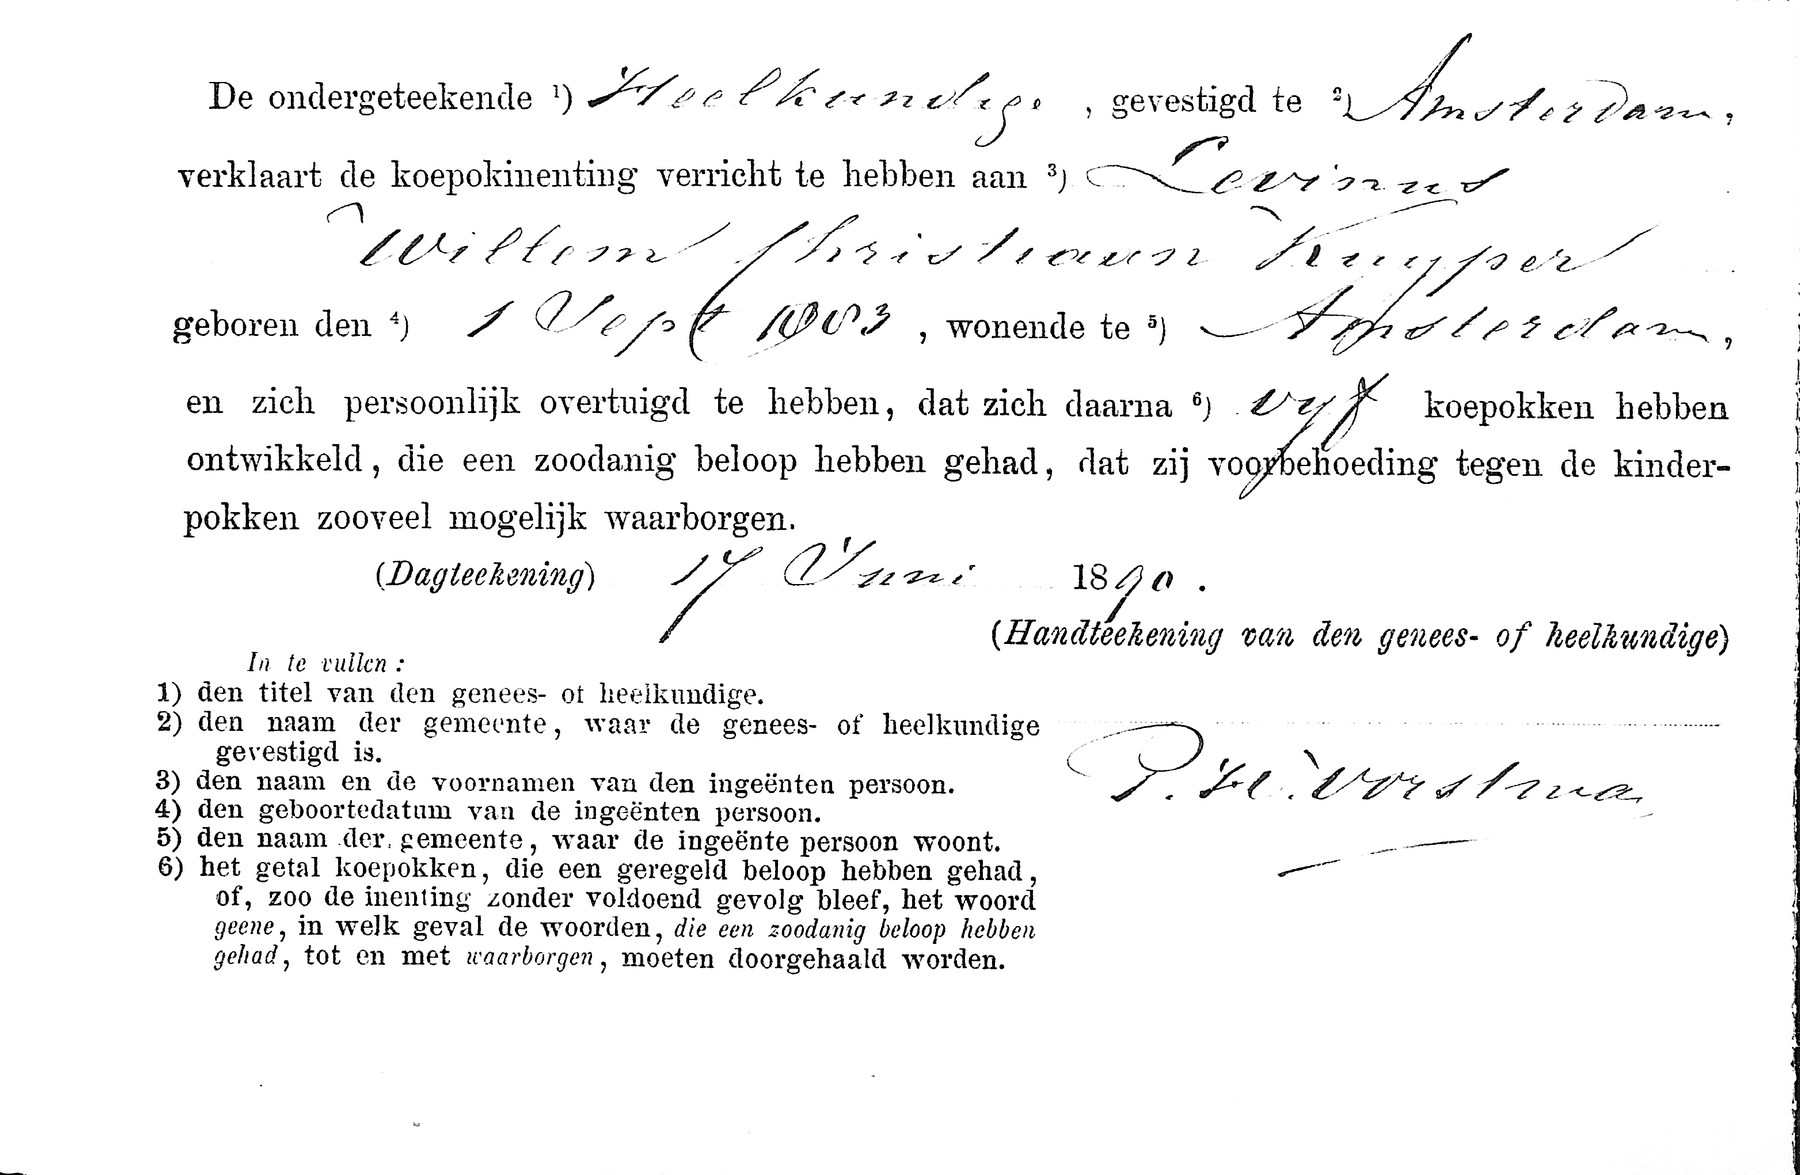 De ondergeteekende ¹) Heelkundige, gevestigd te ²) Amsterdam,
verklaart de koepokinenting verricht te hebben aan ³) Levinus
Willem Christiaan Kuyper
geboren den ⁴) 1 Sept 1883, wonende te ⁵) Amsterdam,
en zich persoonlijk overtuigd te hebben, dat zich daarna ⁶) vyf koepokken hebben
ontwikkeld, die een zoodanig beloop hebben gehad, dat zij voorbehoeding tegen de kinder-
pokken zooveel mogelijk waarborgen.
(Dagteekening) 17 Juni 1890.
(Handteekening van den genees- of heelkundige)
In te vullen:
1) den titel van den genees- of heelkundige.
2) den naam der gemeente, waar de genees- of heelkundige
gevestigd is.
3) den naam en de voornamen van den ingeënten persoon.
4) den geboortedatum van de ingeënten persoon.
5) den naam der gemeente, waar de ingeënte persoon woont.
6) het getal koepokken, die een geregeld beloop hebben gehad,
of, zoo de inenting zonder voldoend gevolg bleef, het woord
geene, in welk geval de woorden, die een zoodanig beloop hebben
gehad, tot en met waarborgen, moeten doorgehaald worden.
P. H. Vorstman